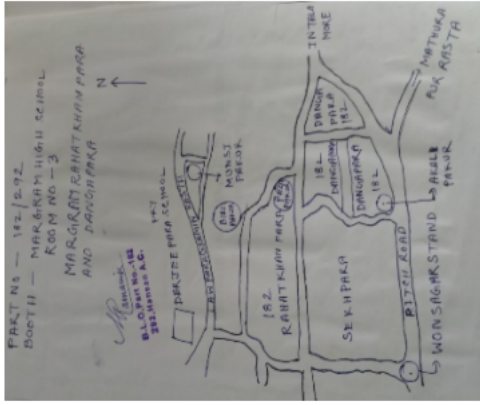 PART NO - 182/292
BOOTH - MARGRAM HIGH SCHOOL
ROOM NO - 3
MARGRAM RAHATKHAN PARA
AND DANGA PARA
N
B.L.O. Part No.-182
292, Hansan A.C.
DERJEE PARA SCHOOL
MUNSI
PAKUR
182
RAHATKHAN PARA
SEKHPARA
182
DANGAPARA
DANGAPARA
182
DANGA
PARA
182
IN TALA
MORE
MATHURA
PUR RASTA
PITCH ROAD
WONSAGAR STAND
AKALE
PAKUR